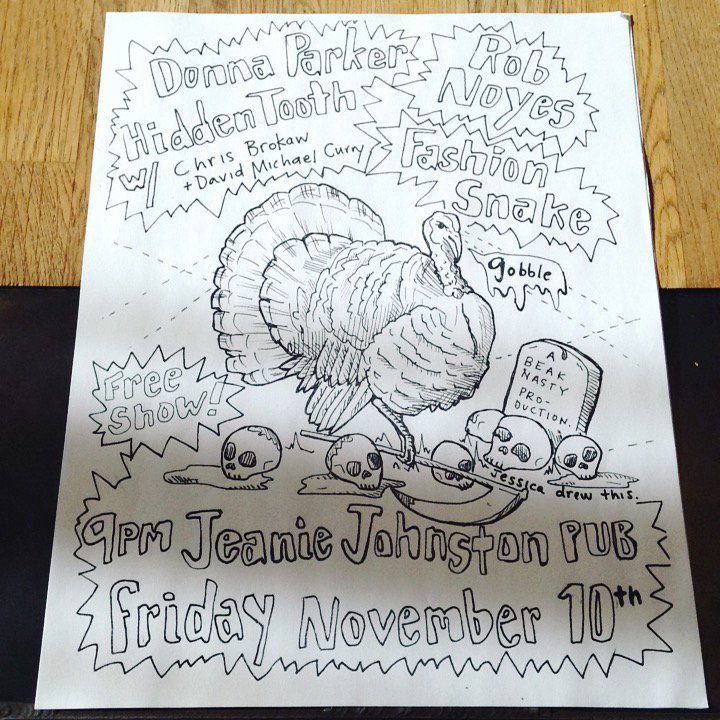 Donna Parker
Hidden Tooth
w/ Chris Brokaw
+ David Michael Curry
Rob
Noyes
Fashion
Snake
gobble
Free
Show!
A
BEAK
NASTY
PRO-
DUCTION.
Jessica drew this.
9PM Jeanie Johnston PUB
friday November 10th